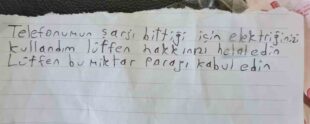 Telefonumun şarjı bittiği için elektriğinizi
kullandım lütfen hakkınızı helal edin
Lütfen bu miktar parayı kabul edin